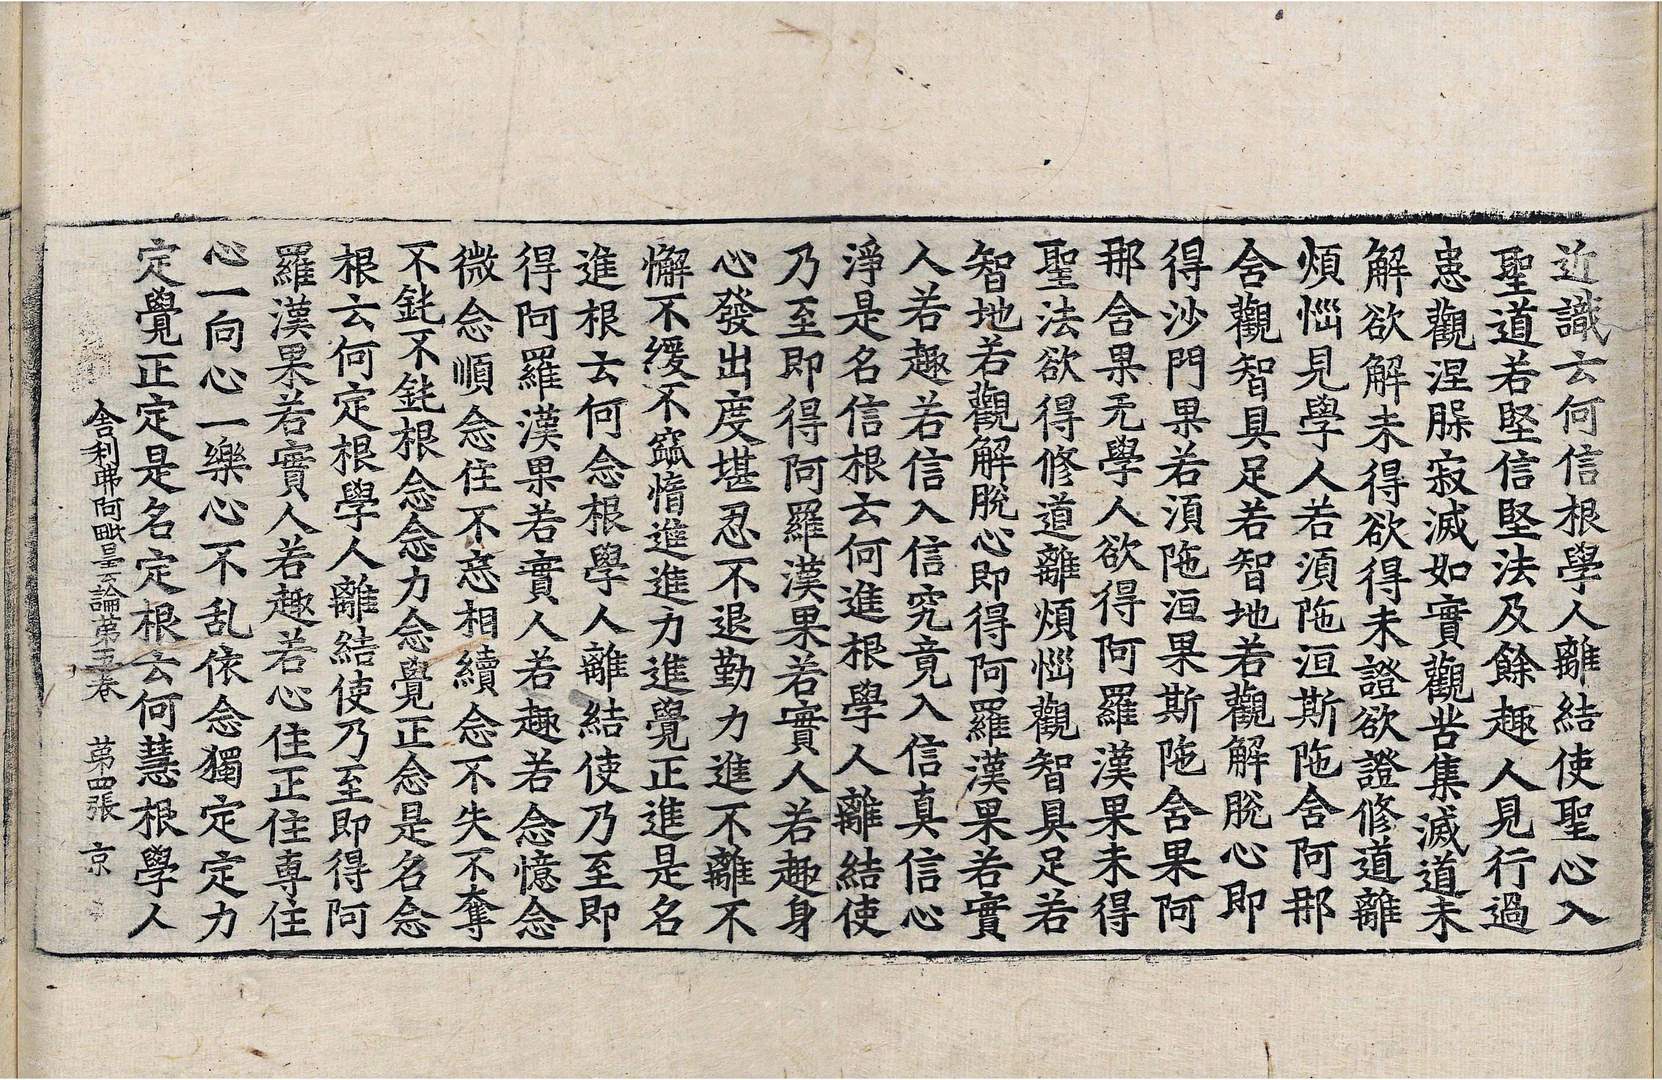 近識云何信根學人離結使聖心入
聖道若堅信堅法及餘趣人見行過
患觀涅脲寂滅如實觀苦集滅道未
解欲解未得欲得未證欲證修道離
煩惱見學人若湏陁洹斯陁舍阿那
舍觀智具足若智地若觀解脫心即
得沙門果若湏陁洹果斯陁舍果阿
那舍果无學人欲得阿羅漢果未得
聖法欲得修道離煩惱觀智具足若
智地若觀解脫心即得阿羅漢果若實
人若趣若信入信究竟入信真信心
淨是名信根云何進根學人離結使
乃至即得阿羅漢果若實人若趣身
心發出度堪忍不退勤力進不離不
懈不緩不窳惰進進力進覺正進是名
進根云何念根學人離結使乃至即
得阿羅漢果若實人若趣若念憶念
微念順念住不忘相續念不失不奪
不鈍不鈍根念念力念覺正念是名念
根云何定根學人離結使乃至即得阿
羅漢果若實人若趣若心住正住專住
心一向心一樂心不乱依念獨定定力
定覺正定是名定根云何慧根學人
舍利弗阿毗曇論第五卷 第四張 京